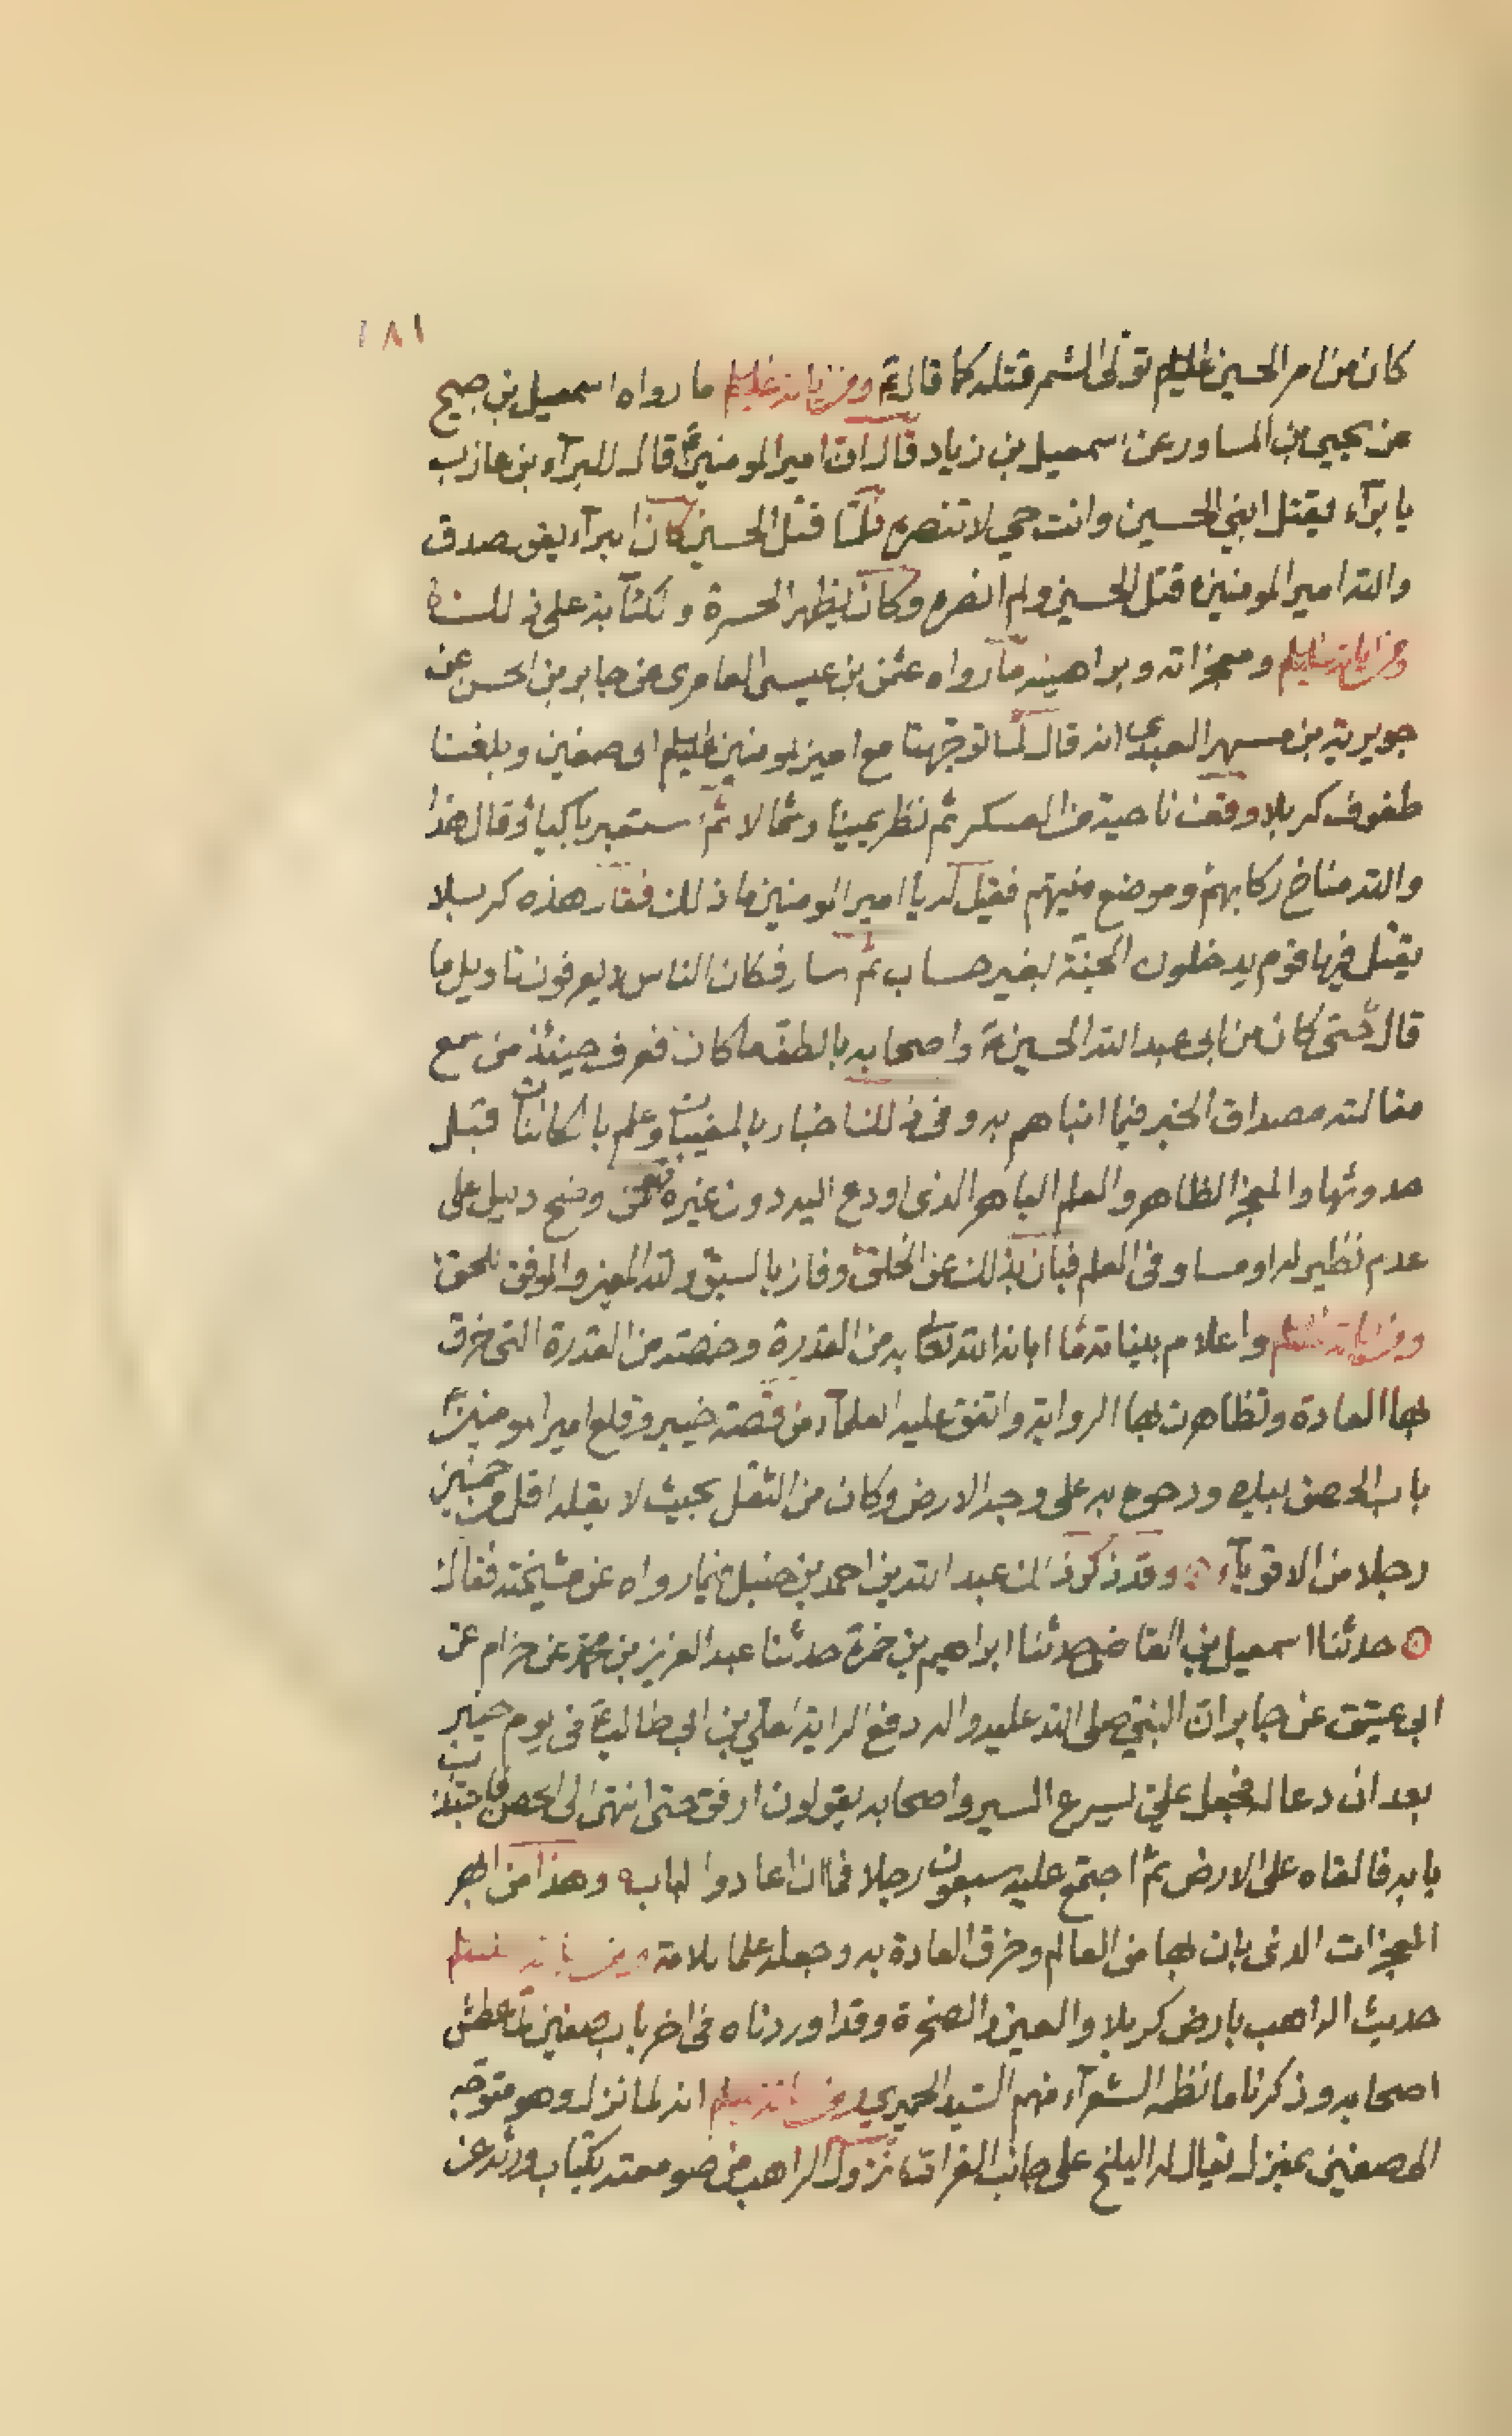 ١٨١
كان من امر الحسين عليلم تولى الشمر قتله كما قال ثم ومن اياته عليلم ما رواه اسمعيل بن صبيح
عن يحيى بن المساور عن اسمعيل بن زياد قال ان امير المومنين ع قال للبرآء بن عازب
يا برآء يقتل ابنى الحسين وانت حي لا تنصره فلما قتل الحسين كان البرآء يقول صدق
والله امير المومنين قتل الحسين ولم انصره وكان يظهر الحسرة والكئآبة على ذلك
ومن اياته عليلم ومعجزاته وبراهينه ما رواه عثمن بن عيسى العامرى عن جابر بن الحسن عن
جويرية بن مسهر العبدي انه قال لما توجهنا مع امير المومنين عليلم الى صفين وبلغنا
طفوف كربلا وقف ناحية من العسكر ثم نظر يمينا وشمالا ثم استعبر باكيا وقال هذا
والله مناخ ركابهم وموضع منيتهم فقيل له يا امير المومنين ما ذلك فقال هذه كربلا
يقتل فيها قوم يدخلون الجنة بغير حساب ثم سار فكان الناس لا يعرفون تاويل ما
قال حتى كان من ابى عبد الله الحسين ع واصحابه بالطف ما كان فعرف حينئذ من سمع
مقالته مصداق الخبر فيما انباهم به وفى ذلك اخبار بالمغيبات وعلم بالكائنات قبل
حدوثها والمعجز الظاهر والعلم الباهر الذى اودع اليه دون غيره وضح دليل على
عدم نظير له او مساو فى العلم فبان بذلك عن الخلق وفاز بالسبق والله المعين والموفق للحق
ومن اياته عليلم واعلام بيناته ما ابانه الله تعا به من القدرة وخصه من القدرة التى خرق
بها العادة وتظاهرت بها الرواية واتفق عليه العلمآء من قصة خيبر وقلع امير المومنين ع
باب الحصن بيده ودحوه به على وجه الارض وكان من الثقل بحيث لا يقله اقل من خمسين
رجلا من الاقويآء وقد ذكر ذلك عبد الله بن احمد بن حنبل فيما رواه عن مشيخته فقال
حدثنا اسمعيل بن القاضى حدثنا ابراهيم بن حمزة حدثنا عبد العزيز بن محمد عن حزام عن
ابى عتيق عن جابر ان النبي صلى الله عليه واله دفع الراية لعلي بن ابى طالب ع فى يوم خيبر
بعد ان دعا له فجعل علي يسرع السير واصحابه يقولون ارفق حتى انتهى الى الحصن فاجتذب
بابه فالقاه على الارض ثم اجتمع عليه سبعون رجلا فما ان اعادوا الباب وهذا من ابهر
المعجزات الذى بان بها من العالم وخرق العادة به وجعله علما بلامة ومن اياته عليلم
حديث الراهب بارض كربلا والعين والصخرة وقد اوردناه فى اخر باب صفين لما عطش
اصحابه وذكرنا ما نظمه الشعرآء منهم السيد الحميري ومن اياته عليلم انه لما نزل وهو متوجه
الى صفين بمنزل يقال له البليخ على جانب الفرات نزول الراهب من صومعته بكتاب ورثه عن